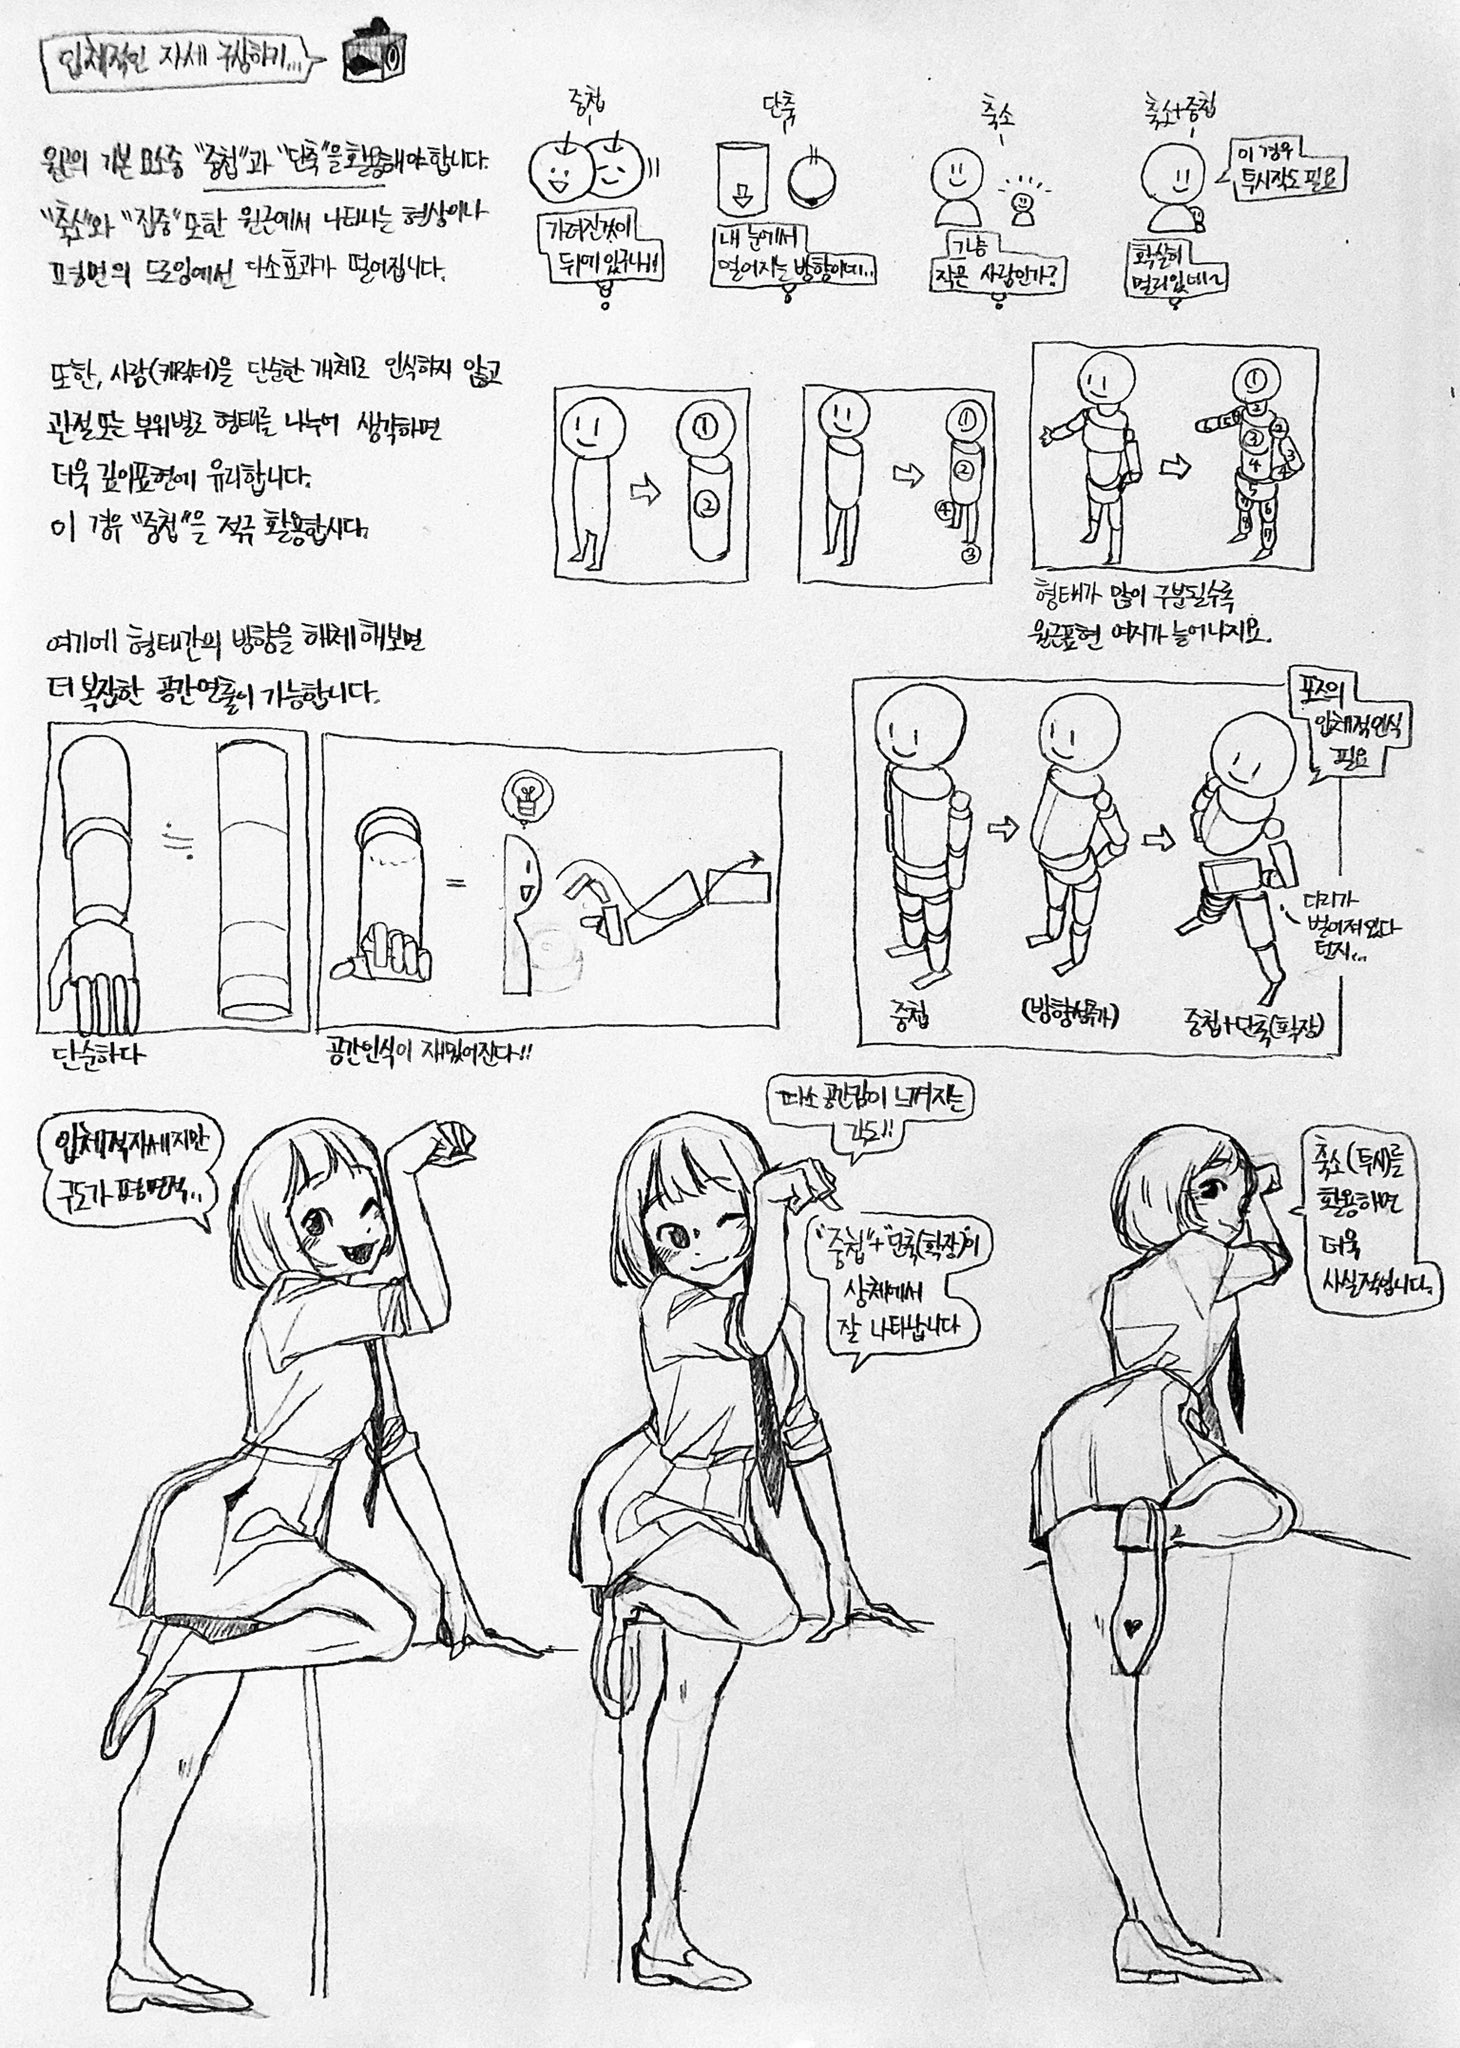 입체적인 자세 구상하기...
원근의 기본 요소중 "중첩"과 "단축"을 활용해야합니다.
"축소"와 "집중" 또한 원근에서 나타나는 현상이나
평면의 드로잉에선 다소효과가 떨어집니다.
중첩
가려진것이
뒤에 있구나!!
단축
내 눈에서
멀어지는 방향이네...
축소
그냥
작은 사람인가?
축소+중첩
이 경우
투시작도 필요
확실히
멀리있네~
또한, 사람(캐릭터)을 단순한 개체로 인식하지 않고
관절 또는 부위별로 형태를 나누어 생각하면
더욱 깊이표현에 유리합니다.
이 경우 "중첩"을 적극 활용합시다.
1
2
1
2
4
3
1
2
3
4
5
형태가 많이 구분될수록
원근표현 여지가 늘어나지요.
여기에 형태간의 방향을 해체 해보면
더 복잡한 공간연출이 가능합니다.
단순하다
=
공간인식이 재밌어진다!!
포즈의
입체적인식
필요
다리가
벌어져있다
던지...
중첩
(방향추가)
중첩+단축(확장)
입체적자세지만
구도가 평면적..
다소 공간감이 느껴지는
각도!!
"중첩"+"단축(확장)이
상체에서
잘 나타납니다
축소(투시)를
활용하면
더욱
사실적입니다.